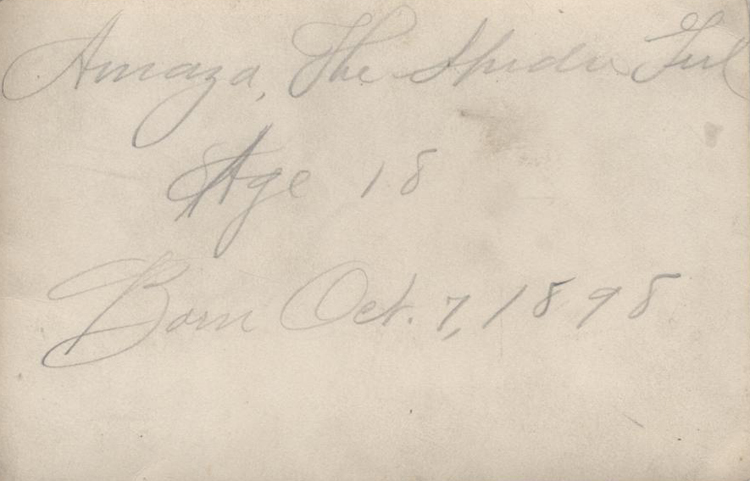 Amaza, The Spider Girl
Age 18
Born Oct. 7, 1898